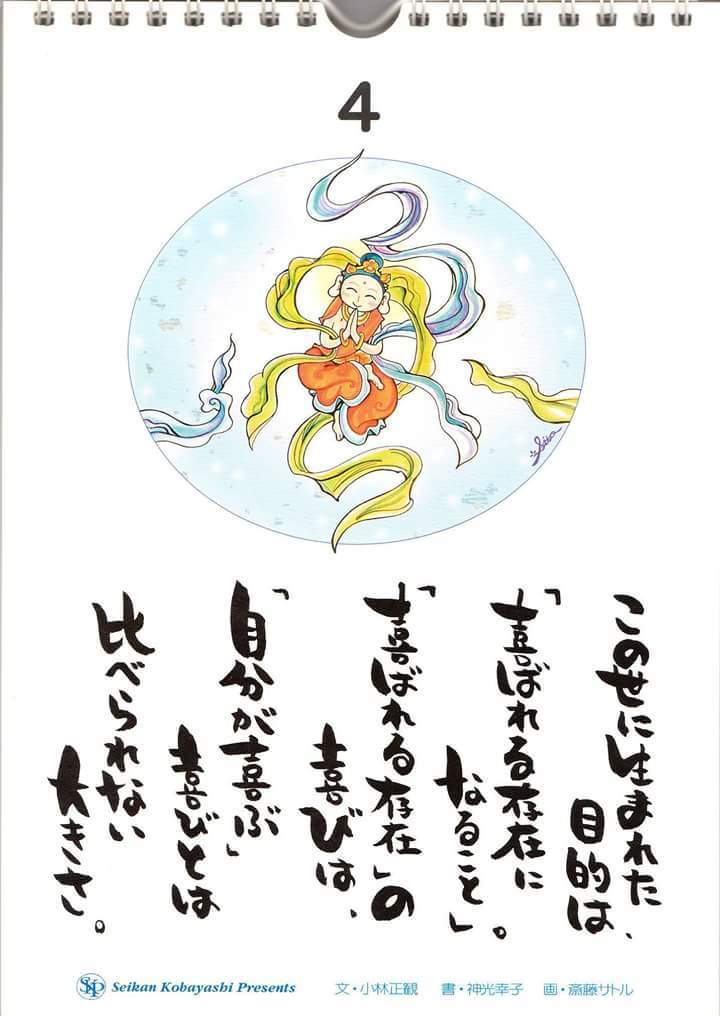 4
この世に生まれた
目的は、
「喜ばれる存在に
なること」。
「喜ばれる存在」の
喜びは、
「自分が喜ぶ」
喜びとは
比べられない
大きさ。
SKP Seikan Kobayashi Presents
文・小林正観 書・神光幸子 画・斎藤サトル